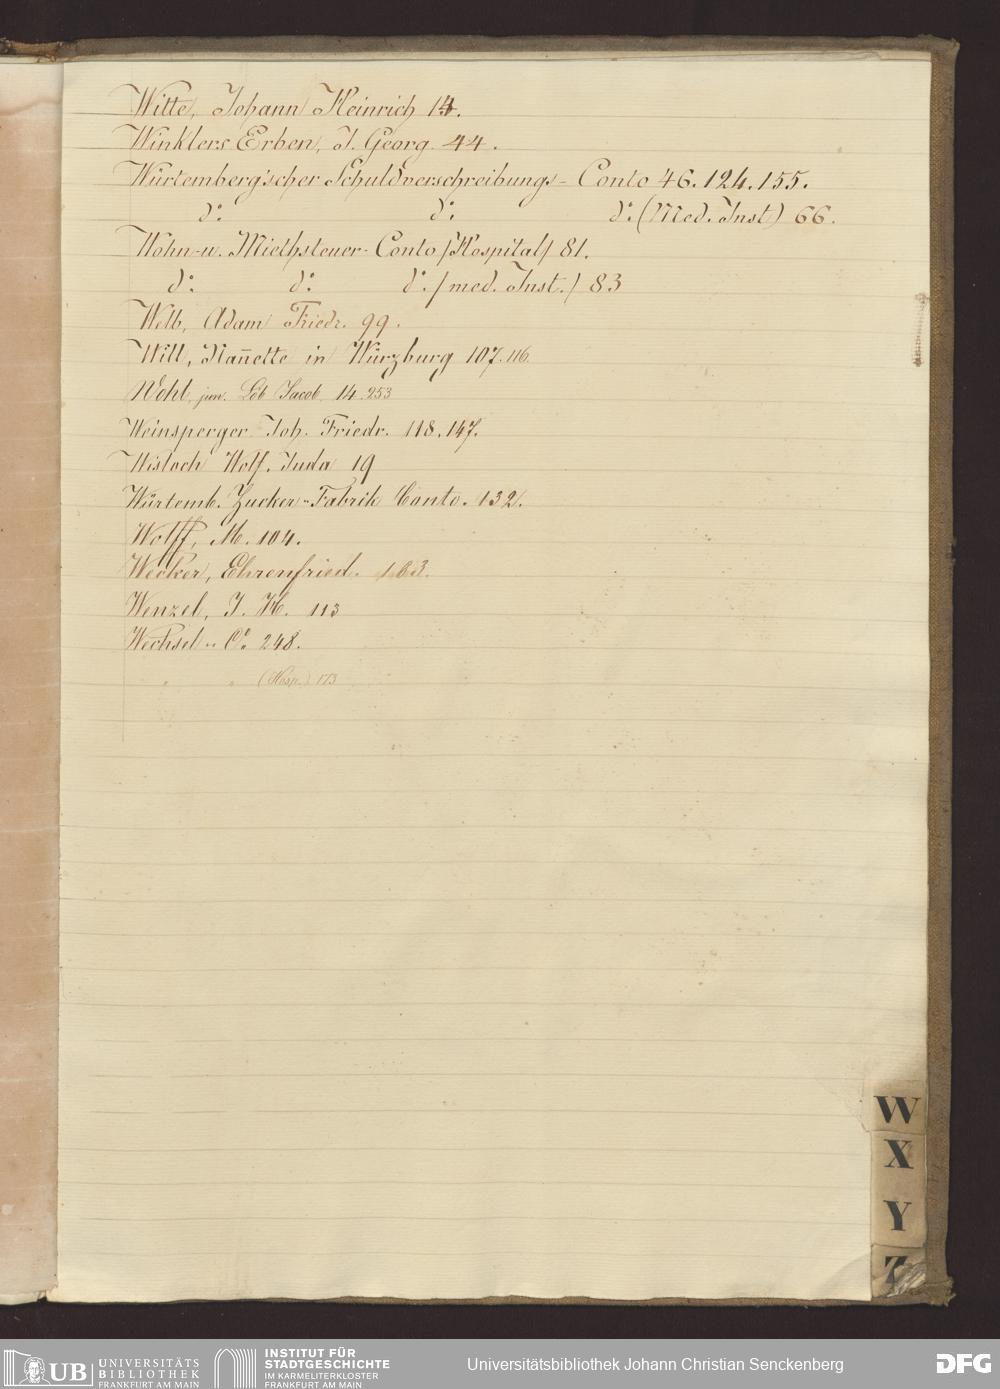 Witte, Johann Heinrich 14.
Winklers Erben, J. Georg. 44.
Würtemberg'scher Schuldverschreibungs-Conto 46. 124. 155.
d°: d°: d°: (Med. Inst) 66.
Wohn- u. Miethsteuer-Conto /Hospital/ 81.
d°: d°: d°: /med. Inst./ 83
Welb, Adam Friedr. 99.
Will, Nan̄ette in Würzburg 107. 116.
Wohl jun. Löb Jacob 14. 253
Weinsperger Joh. Friedr. 118. 147.
Wisloch Wolf. Juda 19
Würtemb. Zucker-Fabrik Conto. 132.
Wolff, M. 104.
Wecker, Ehrenfried. 163.
Wenzel, J. H. 113
Wechsel-C°. 248.
" " (Hosp.) 173
W
X
Y
Z
UB UNIVERSITÄTS BIBLIOTHEK FRANKFURT AM MAIN
INSTITUT FÜR STADTGESCHICHTE IM KARMELITERKLOSTER FRANKFURT AM MAIN
Universitätsbibliothek Johann Christian Senckenberg
DFG